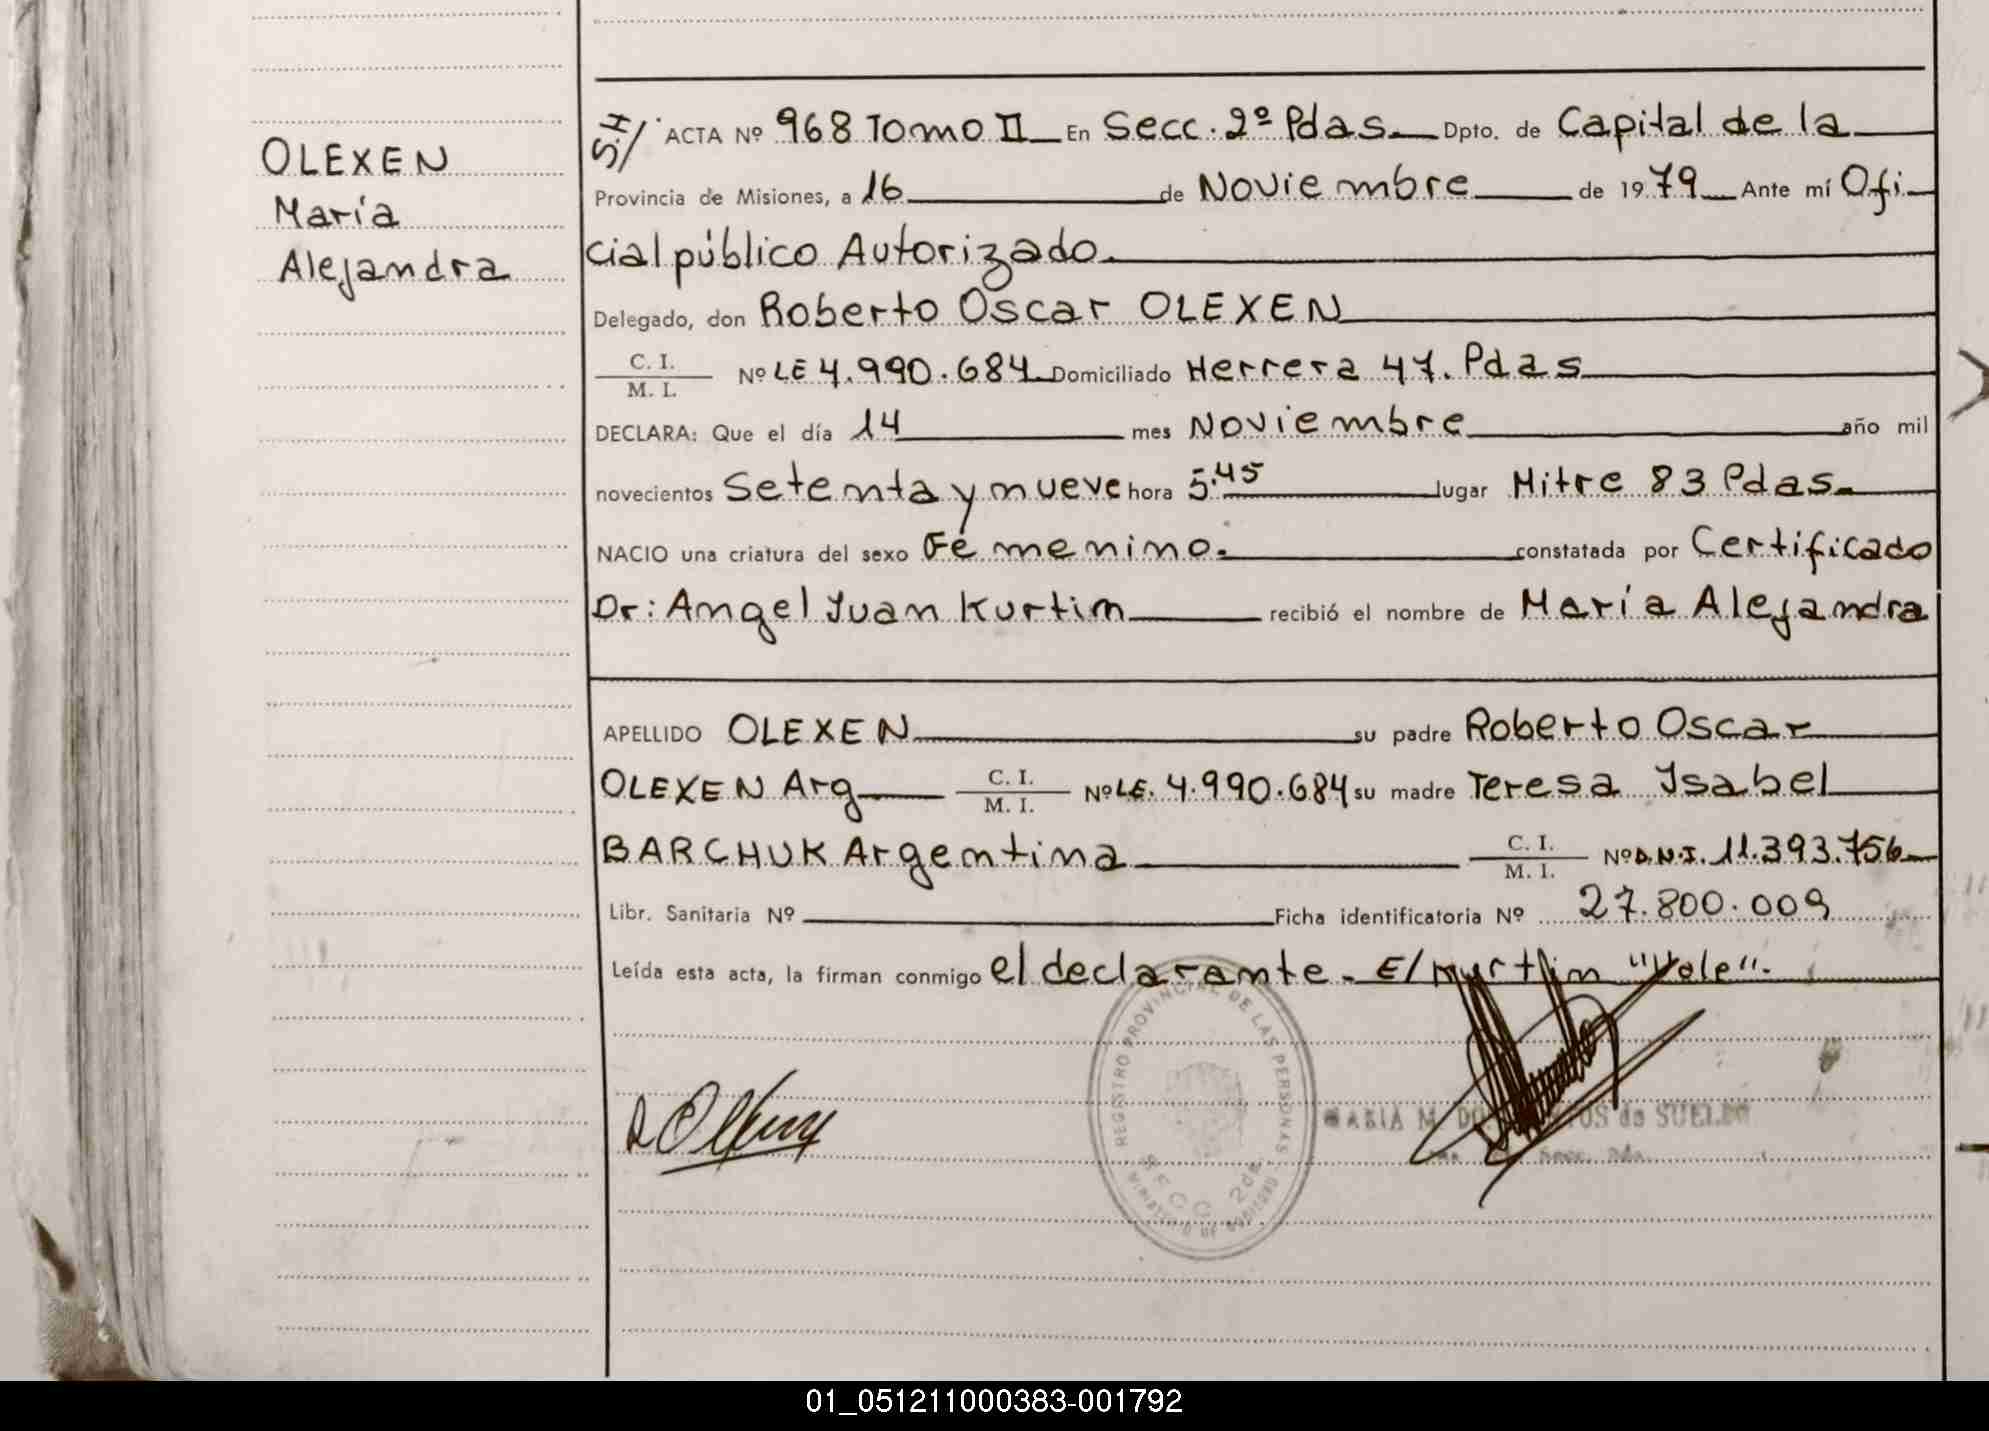 OLEXEN
María
Alejandra
S.H/ ACTA Nº 968 Tomo II En Secc. 2º Pdas. Dpto. de Capital de la
Provincia de Misiones, a 16 de Noviembre de 1979 Ante mí Ofi
cial público Autorizado.
Delegado, don Roberto Oscar OLEXEN
C. I. / M. I. Nº LE 4.990.684 Domiciliado Herrera 47. Pdas
DECLARA: Que el día 14 mes Noviembre año mil
novecientos Setenta y nueve hora 5.45 lugar Mitre 83 Pdas.
NACIO una criatura del sexo Femenino. constatada por Certificado
Dr: Angel Juan Kurtim recibió el nombre de María Alejandra
APELLIDO OLEXEN su padre Roberto Oscar
OLEXEN Arg C. I. / M. I. Nº LE. 4.990.684 su madre Teresa Isabel
BARCHUK Argentina C. I. / M. I. Nº D.N.I. 11.393.756
Libr. Sanitaria Nº Ficha identificatoria Nº 27.800.009
Leída esta acta, la firman conmigo el declarante. E/ "Vale".
REGISTRO PROVINCIAL DE LAS PERSONAS
SECC. 2da.
MARIA M. de SUELDO
01_051211000383-001792